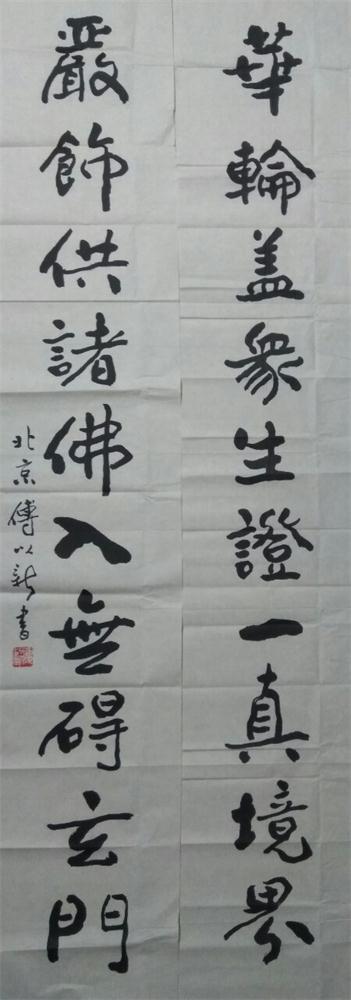 華輪盖衆生證一真境界
嚴飾供諸佛入無碍玄門
北京傅以新書